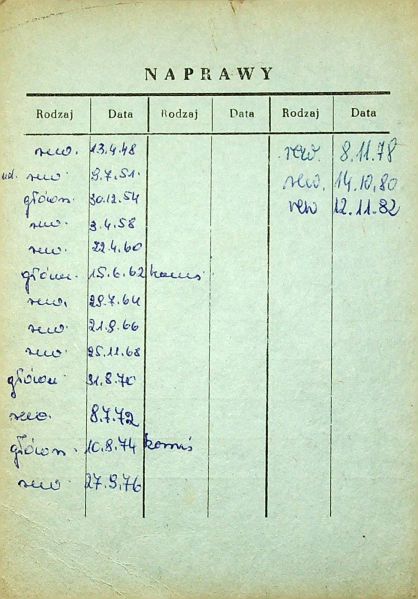 NAPRAWY
Rodzaj Data Rodzaj Data Rodzaj Data
rew. 13.4.48 rew. 8.11.78
rew. 9.7.51. rew. 14.10.80
główn. 30.12.54 rew 12.11.82
rew. 3.4.58
rew. 22.4.60
główn. 15.6.62
rew. 29.7.64
rew. 21.9.66
rew. 25.11.68
główn. 31.8.70
rew. 8.7.72
główn. 10.8.74
rew. 27.9.76